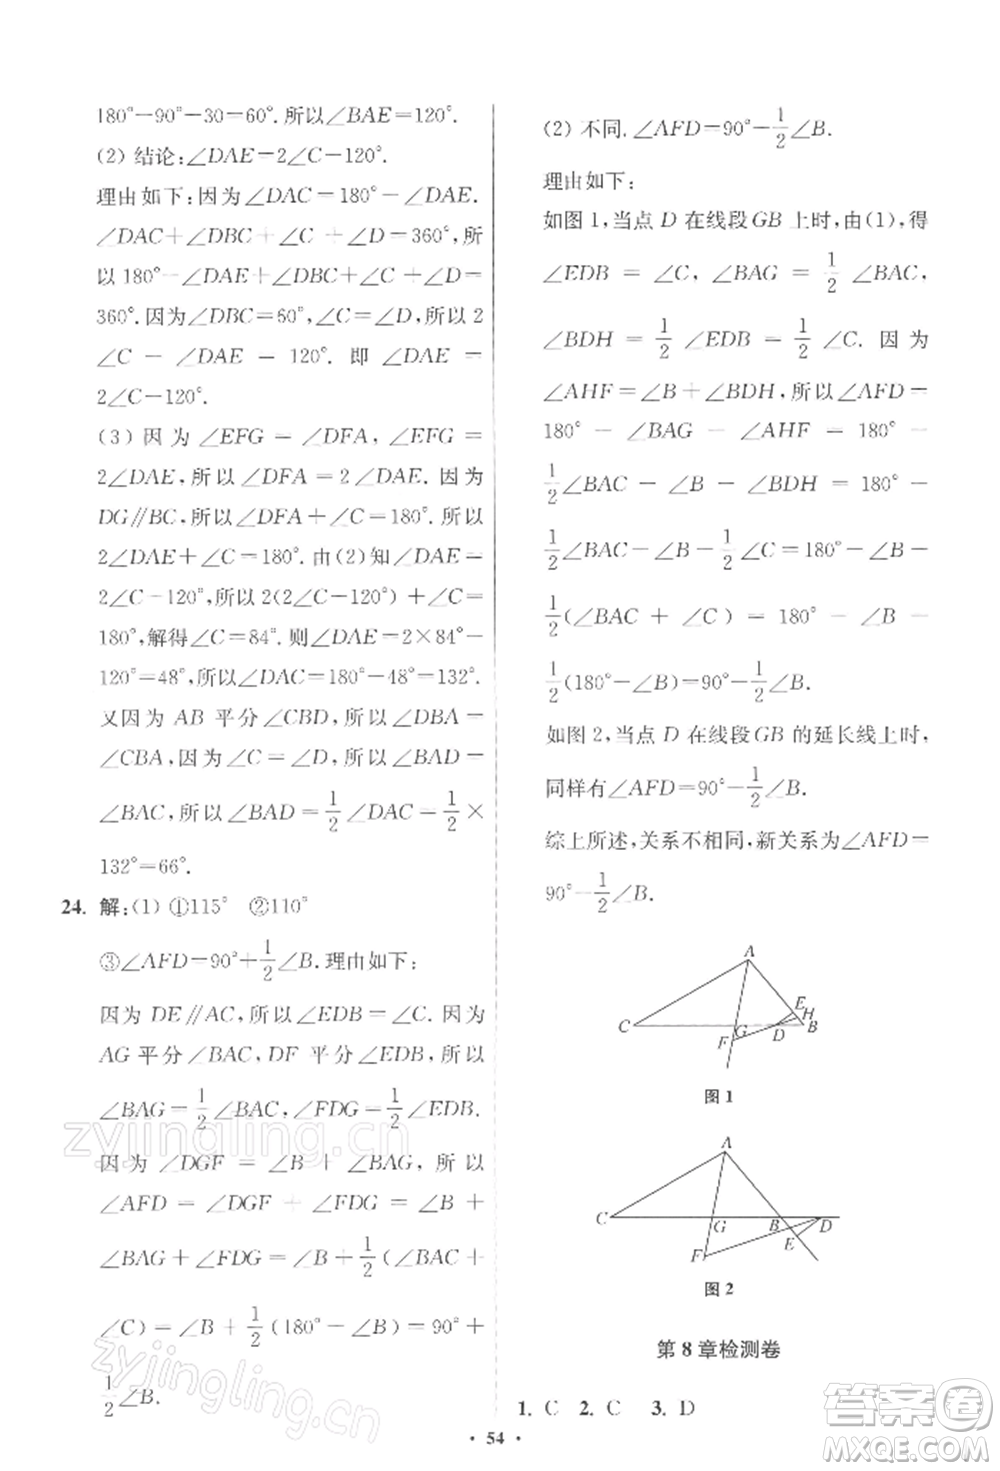 180°−90°−30=60°.所以∠BAE=120°.
(2) 结论:∠DAE=2∠C−120°.
理由如下:因为∠DAC=180°−∠DAE.
∠DAC+∠DBC+∠C+∠D=360°,所
以 180°−∠DAE+∠DBC+∠C+∠D=
360°.因为∠DBC=60°,∠C=∠D,所以 2
∠C − ∠DAE = 120°. 即 ∠DAE =
2∠C−120°.
(3) 因 为 ∠EFG = ∠DFA, ∠EFG =
2∠DAE, 所以 ∠DFA=2∠DAE. 因为
DG∥BC,所以∠DFA+∠C=180°.所以
2∠DAE+∠C=180°. 由(2)知∠DAE=
2∠C−120°,所以 2(2∠C−120°)+∠C=
180°,解得∠C=84°. 则∠DAE=2×84°−
120°=48°,所以∠DAC=180°−48°=132°.
又因为 AB 平分∠CBD, 所以∠DBA=
∠CBA, 因为∠C=∠D, 所以∠DAB=
∠BAC,所以∠BAD=1/2∠DAC=1/2×
132°=66°.
24. 解:(1) ①115° ②110°
③∠AFD=90°+1/2∠B.理由如下:
因为 DE∥AC,所以∠EDB=∠C. 因为
AG 平分∠BAC, DF 平分∠EDB, 所以
∠BAG=1/2∠BAC,∠FDG=1/2∠EDB.
因为 ∠DGF = ∠B + ∠BAG, 所以
∠AFD = ∠DGF + ∠FDG = ∠B +
∠BAG + ∠FDG = ∠B + 1/2 (∠BAC +
∠C) = ∠B + 1/2 (180° − ∠B) = 90° +
1/2∠B.
(2) 不同.∠AFD=90°−1/2∠B.
理由如下:
如图 1,当点 D 在线段 GB 上时,由(1),得
∠EDB = ∠C, ∠BAG = 1/2 ∠BAC,
∠BDH = 1/2 ∠EDB = 1/2 ∠C. 因为
∠AHF=∠B+∠BDH,所以∠AFD=
180° − ∠BAG − ∠AHF = 180° −
1/2∠BAC − ∠B − ∠BDH = 180° −
1/2∠BAC−∠B−1/2∠C=180°−∠B−
1/2(∠BAC + ∠C) = 180° − ∠B −
1/2(180°−∠B)=90°−1/2∠B.
如图 2,当点 D 在线段 GB 的延长线上时,
同样有∠AFD=90°−1/2∠B.
综上所述,关系不相同,新关系为∠AFD=
90°−1/2∠B.
A
C G D E H B
F
图 1
A
C G B D
E
F
图 2
第 8 章检测卷
1. C 2. C 3. D
• 54 •
zyjingling.cn
zyjingling.cn
答案圈
MXQE.COM